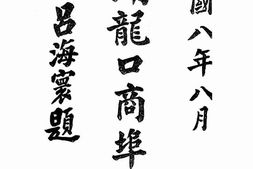 國八年八月
龍口商埠
呂海寰題